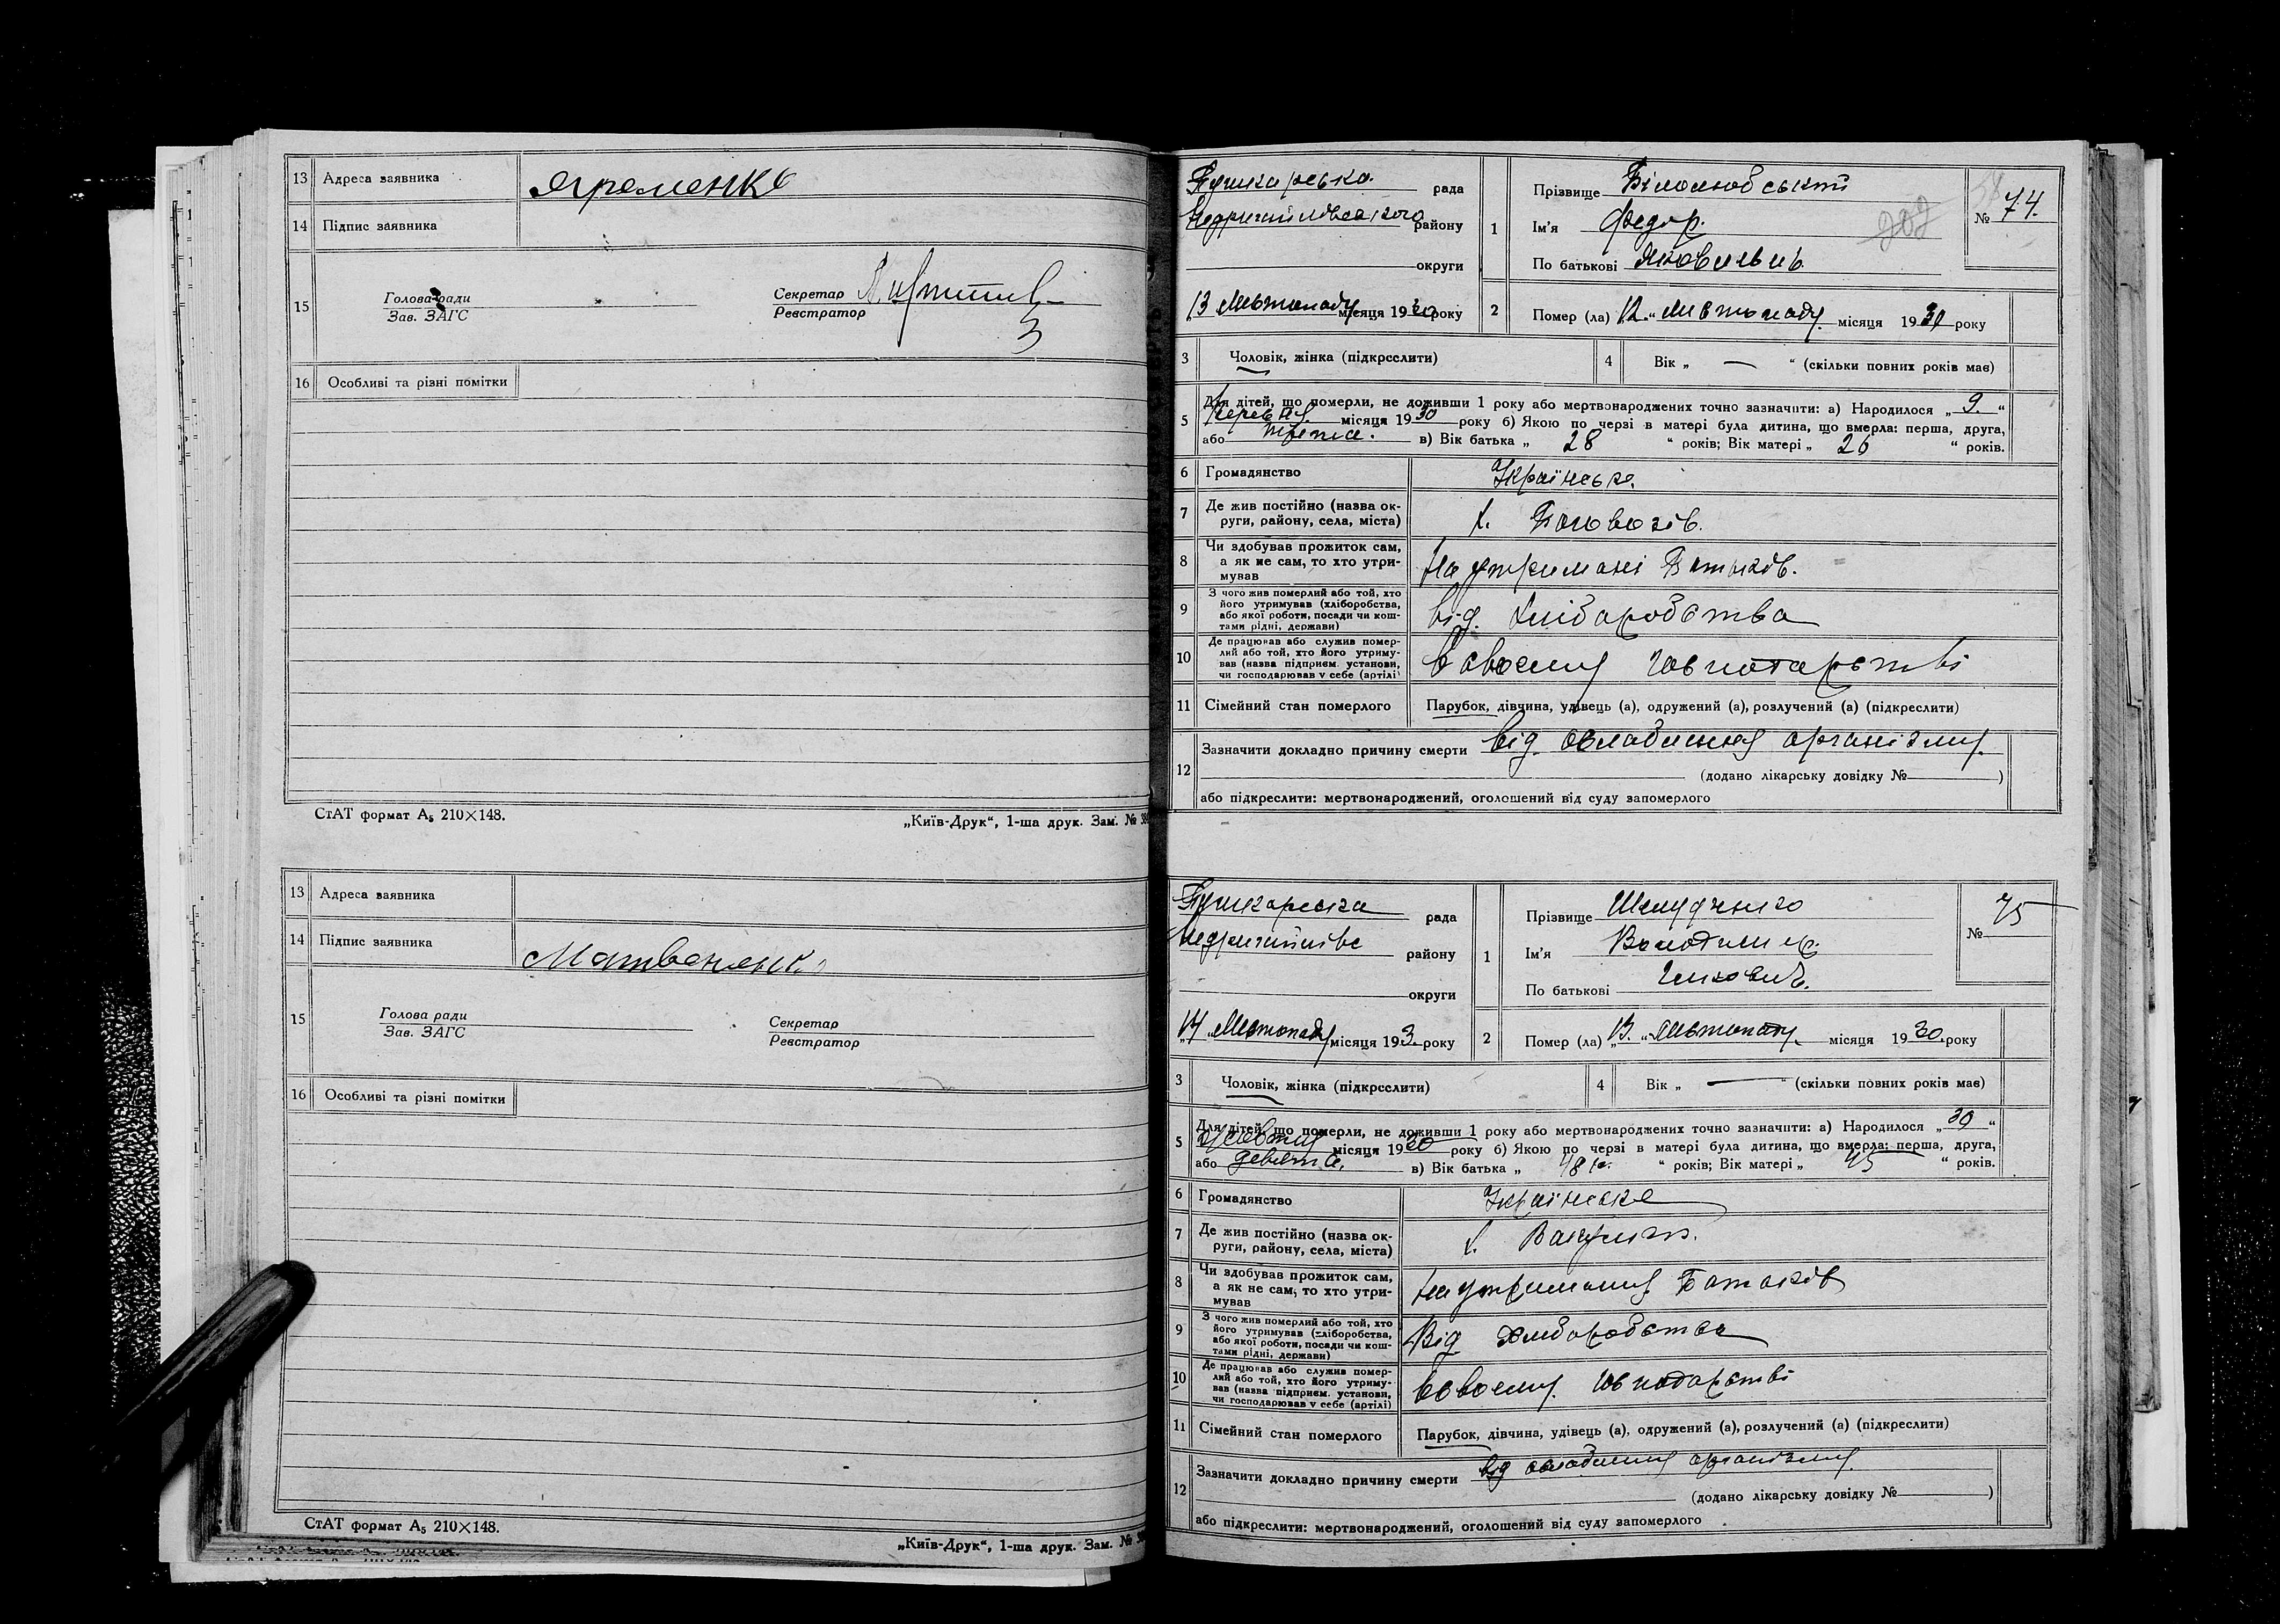 13 Адреса заявника
14 Підпис заявника
Яременко
15 Голова ради
Зав. ЗАГС
Секретар
Реєстратор
16 Особливі та різні помітки
СтАТ формат А5 210×148.
„Київ-Друк“, 1-ша друк. Зам. №
13 Адреса заявника
14 Підпис заявника
Матвієнко
15 Голова ради
Зав. ЗАГС
Секретар
Реєстратор
16 Особливі та різні помітки
СтАТ формат А5 210×148.
„Київ-Друк“, 1-ша друк. Зам. №
Пушкарська рада
району
округи
13 Листопаду місяця 1930 року
1 Прізвище Білолюбський
Ім'я Федор.
По батькові Якович
№ 74.
2 Помер (ла) 12 „ Листопаду місяця 1930 року
3 Чоловік, жінка (підкреслити)
4 Вік „ — “ (скільки повних років має)
5 Для дітей, що померли, не доживши 1 року або мертвонароджених точно зазначити: а) Народилося „ 9. “
Червня місяця 1930 року б) Якою по черзі в матері була дитина, що вмерла: перша, друга,
або третя. в) Вік батька „ 28 “ років; Вік матері „ 26 “ років.
6 Громадянство Українське
7 Де жив постійно (назва ок-
руги, району, села, міста)
8 Чи здобував прожиток сам,
а як не сам, то хто утри-
мував
На утримані Батьків.
9 З чого жив померлий або той, хто
його утримував (хліборобства,
або якої роботи, посади чи кош-
тами рідні, держави)
від. Хліборобства
10 Де працював або служив помер-
лий або той, хто його утриму-
вав (назва підприєм. установи,
чи господарював у себе (артілі)
в своєму господарстві
11 Сімейний стан померлого Парубок, дівчина, удівець (а), одружений (а), розлучений (а) (підкреслити)
12 Зазначити докладно причину смерти від ослаблення організму.
(додано лікарську довідку № )
або підкреслити: мертвонароджений, оголошений від суду запомерлого
Пушкарська рада
району
округи
14 „ Листопаду місяця 193. року
1 Прізвище
Ім'я Володимир.
По батькові
№ 75
2 Помер (ла) „ 13. “ Листопаду місяця 1930. року
3 Чоловік, жінка (підкреслити)
4 Вік „ — “ (скільки повних років має)
5 Для дітей, що померли, не доживши 1 року або мертвонароджених точно зазначити: а) Народилося „ 30 “
Жовтня місяця 1930 року б) Якою по черзі в матері була дитина, що вмерла: перша, друга,
або девята. в) Вік батька „ 48 “ років; Вік матері „ 45 “ років.
6 Громадянство Українське
7 Де жив постійно (назва ок-
руги, району, села, міста)
8 Чи здобував прожиток сам,
а як не сам, то хто утри-
мував
На утриманню Батьків
9 З чого жив померлий або той, хто
його утримував (хліборобства,
або якої роботи, посади чи кош-
тами рідні, держави)
Від Хліборобства
10 Де працював або служив помер-
лий або той, хто його утриму-
вав (назва підприєм. установи,
чи господарював у себе (артілі)
в своєму. господарстві
11 Сімейний стан померлого Парубок, дівчина, удівець (а), одружений (а), розлучений (а) (підкреслити)
12 Зазначити докладно причину смерти від ослаблення організму.
(додано лікарську довідку № )
або підкреслити: мертвонароджений, оголошений від суду запомерлого